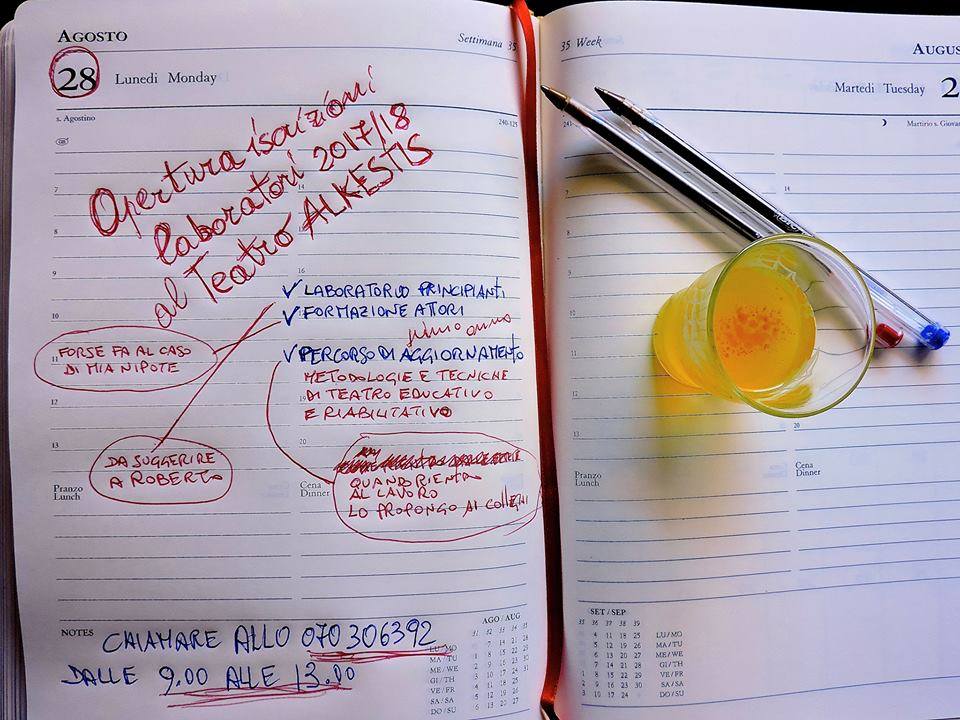 AGOSTO
Settimana 35
28 Lunedì Monday
s. Agostino
240-125
Apertura iscrizioni
laboratori 2017/18
al Teatro ALKESTIS
7
8
9
10
11
12
13
14
16
19
20
✓ LABORATORIO PRINCIPIANTI
✓ FORMAZIONE ATTORI
primo anno
✓ PERCORSO DI AGGIORNAMENTO
METODOLOGIE E TECNICHE
DI TEATRO EDUCATIVO
E RIABILITATIVO
FORSE FA AL CASO
DI MIA NIPOTE
DA SUGGERIRE
A ROBERTO
QUANDO RIENTRO
AL LAVORO
LO PROPONGO AI COLLEGHI
Pranzo
Lunch
Cena
Dinner
NOTES
CHIAMARE ALLO 070 306392
DALLE 9.00 ALLE 13.00
AGO / AUG
31 32 33 34 35
7 14 21 28
LU / MO
1 8 15 22 29
MA / TU
2 9 16 23 30
ME / WE
3 10 17 24 31
GI / TH
4 11 18 25
VE / FR
5 12 19 26
SA / SA
6 13 20 27
DO / SU
35 Week
AUGUS
Martedì Tuesday 2
241-
Martirio s. Giova
7
8
9
10
11
12
13
14
20
Pranzo
Lunch
Cena
Dinner
SET / SEP
35 36 37 38 39
4 11 18 25 LU/MO
5 12 19 26 MA/TU
6 13 20 27 ME/WE
7 14 21 28 GI/TH
1 8 15 22 29 VE/FR
2 9 16 23 30 SA/SA
3 10 17 24 DO/SU